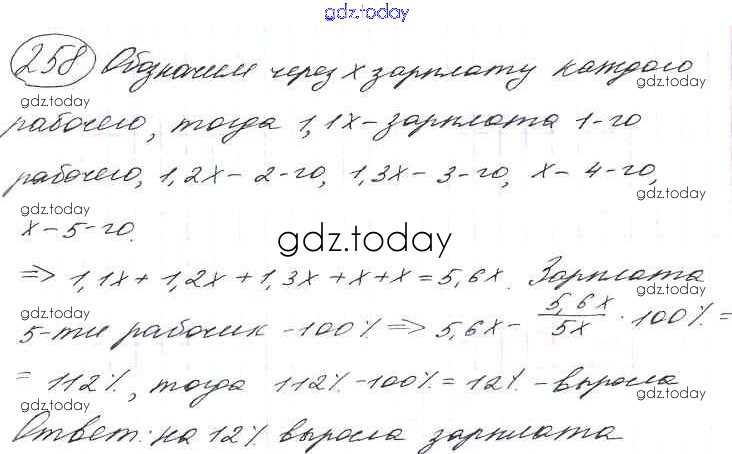 gdz.today
258 Обозначим через x зарплату каждого
gdz.today gdz.today
рабочего, тогда 1,1x – зарплата 1-го
рабочего, 1,2x – 2-го, 1,3x – 3-го, x – 4-го,
gdz.today gdz.today
x – 5-го.
gdz.today
=> 1,1x + 1,2x + 1,3x + x + x = 5,6x. Зарплата
gdz.today gdz.today
5-ти рабочих - 100% => 5,6x - 5,6x/5x · 100% =
= 112%, тогда 112% - 100% = 12% - выросла
gdz.today gdz.today
Ответ: на 12% выросла зарплата